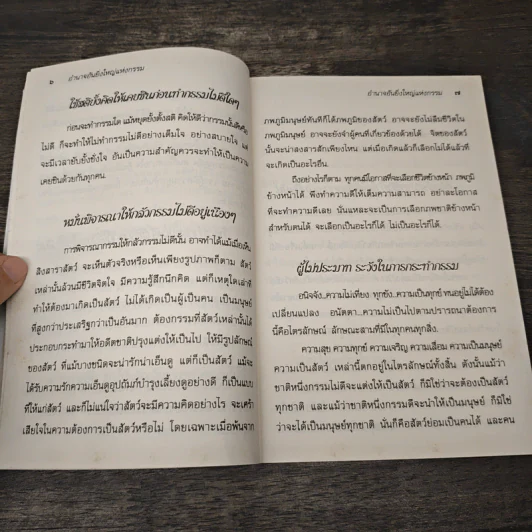 ๖
อำนาจอันยิ่งใหญ่แห่งกรรม
ใช้สติยั้งคิดให้เคยชินก่อนทำกรรมไม่ดีใดๆ
ก่อนจะทำกรรมใด แม้หยุดยั้งตั้งสติ คิดให้ดีว่ากรรมนั้นดีหรือ
ไม่ดี ก็จะทำให้ไม่ทำกรรมไม่ดีอย่างเต็มใจ อย่างสบายใจ แต่
จะมีเวลายับยั้งชั่งใจ อันเป็นความสำคัญควรจะทำให้เป็นความ
เคยชินด้วยกันทุกคน
หมั่นพิจารณาให้กลัวกรรมไม่ดีอยู่เนืองๆ
การพิจารณากรรมให้กลัวกรรมไม่ดีนั้น อาจทำได้แม้เมื่อเห็น
สิงสาราสัตว์ จะเห็นตัวจริงหรือเห็นเพียงรูปภาพก็ตาม สัตว์
เหล่านั้นล้วนมีชีวิตจิตใจ มีความรู้สึกนึกคิด แต่ก็เหตุใดเล่าที่
ทำให้ต้องมาเกิดเป็นสัตว์ ไม่ได้เกิดเป็นผู้เป็นคน เป็นมนุษย์
ที่สูงกว่าประเสริฐกว่าเป็นอันมาก ต้องกรรมที่สัตว์เหล่านั้นได้
ประกอบกระทำมาให้อดีตชาติปรุงแต่งให้เป็นไป ให้มีรูปลักษณ์
ของสัตว์ ที่แม้บางชนิดจะน่ารักน่าเอ็นดู แต่ก็เป็นสัตว์ แม้จะ
ได้รับความรักความเอ็นดูอุปถัมภ์บำรุงเลี้ยงดูอย่างดี ก็เป็นแบบ
ที่ให้แก่สัตว์ และก็ไม่แน่ใจว่าสัตว์จะมีความคิดอย่างไร จะเศร้า
เสียใจในความต้องการเป็นสัตว์หรือไม่ โดยเฉพาะเมื่อพ้นจาก
อำนาจอันยิ่งใหญ่แห่งกรรม
๗
ภพภูมิมนุษย์ทันทีก็ได้ภพภูมิของสัตว์ อาจจะยังไม่ลืมชีวิตใน
ภพภูมิมนุษย์ อาจจะยังจำผู้คนที่เกี่ยวข้องด้วยได้ จิตของสัตว์
นั้นจะน่าสงสารสักเพียงไหน แต่เมื่อเกิดแล้วก็เลือกไม่ได้แล้วที่
จะเกิดเป็นอะไรอื่น
ถึงอย่างไรก็ตาม ทุกคนมีโอกาสที่จะเลือกชีวิตข้างหน้า ภพภูมิ
ข้างหน้าได้ พึงทำความดีให้เต็มความสามารถ อย่าละโอกาส
ที่จะทำความดีเลย นั่นแหละจะเป็นการเลือกภพชาติข้างหน้า
สำหรับตนได้ จะเลือกเป็นอะไรก็ได้ ไม่เป็นอะไรก็ได้
ผู้ไม่ประมาท ระวังในการกระทำกรรม
อนิจจัง...ความไม่เที่ยง ทุกขัง...ความเป็นทุกข์ ทนอยู่ไม่ได้ต้อง
เปลี่ยนแปลง อนัตตา...ความไม่เป็นไปตามปรารถนาต้องการ
นี้คือไตรลักษณ์ ลักษณะสามที่มีในทุกคนทุกสิ่ง
ความสุข ความทุกข์ ความเจริญ ความเสื่อม ความเป็นมนุษย์
ความเป็นสัตว์ เหล่านี้ตกอยู่ในไตรลักษณ์ทั้งสิ้น ดังนั้นแม้ว่า
ชาติหนึ่งกรรมไม่ดีจะแต่งให้เป็นสัตว์ ก็มิใช่ว่าจะต้องเป็นสัตว์
ทุกชาติ และแม้ว่าชาติหนึ่งกรรมดีจะนำให้เป็นมนุษย์ ก็มิใช่
ว่าจะได้เป็นมนุษย์ทุกชาติ นั่นก็คือสัตว์ย่อมเป็นคนได้ และคน